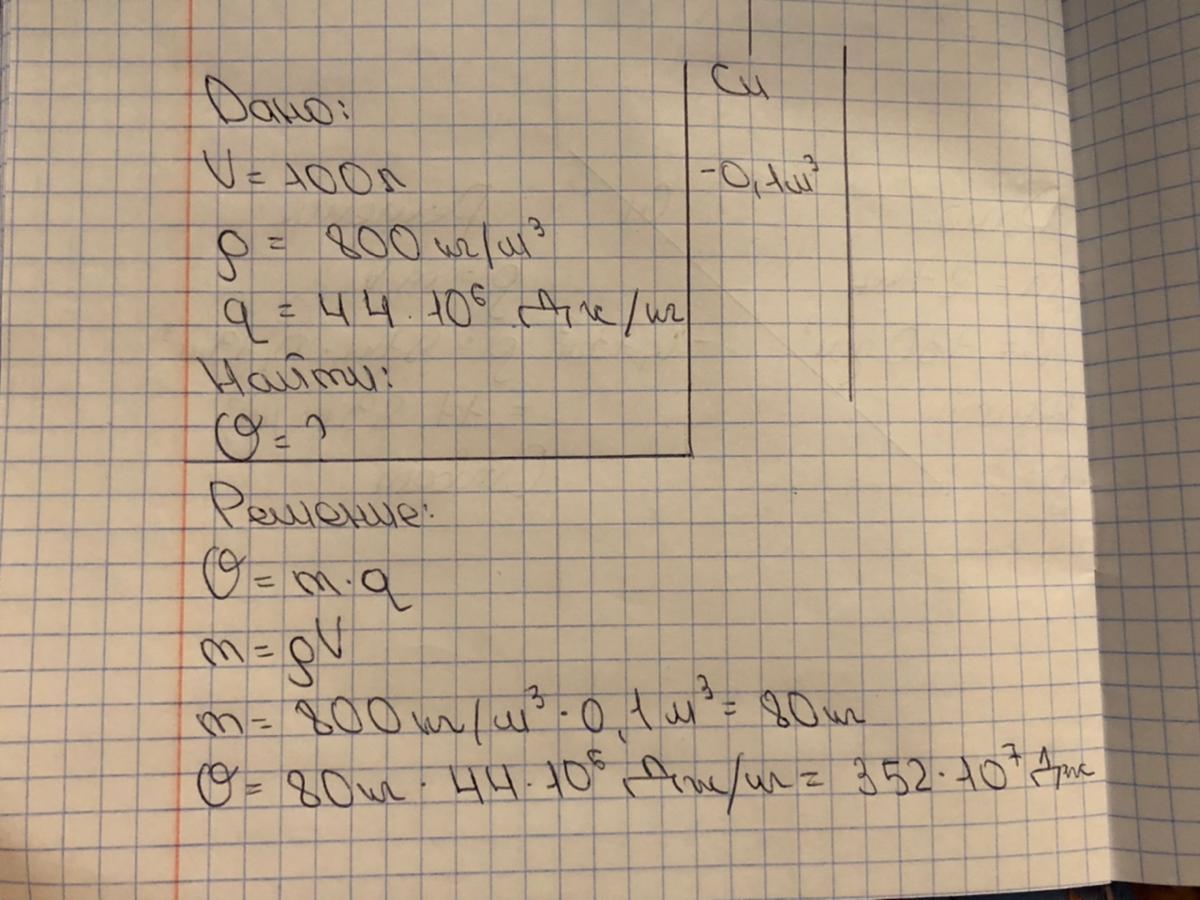 Дано:
V = 100л
ρ = 800 кг/м³
q = 44 · 10⁶ Дж/кг
Найти:
Q = ?
Си
-0,1м³
Решение:
Q = m · q
m = ρV
m = 800 кг/м³ · 0,1 м³ = 80кг
Q = 80кг · 44 · 10⁶ Дж/кг = 352 · 10⁷ Дж